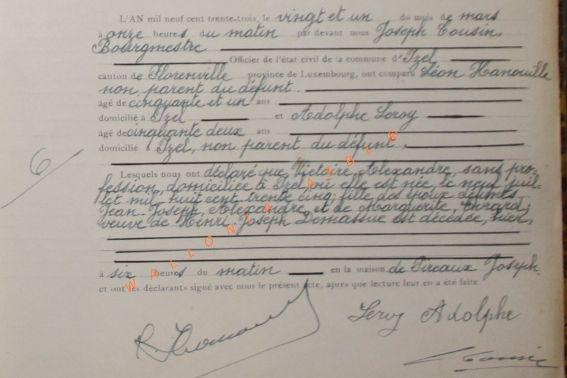 L'AN mil neuf cent trente-trois, le vingt et un du mois de mars
à onze heures du matin par devant nous Joseph Cousin,
Bourgmestre
Officier de l'état civil de la commune d'Izel
canton de Florenville province de Luxembourg, ont comparu Léon Hanouille
non parent du défunt
âgé de cinquante et un ans
domicilié à Izel et Adolphe Leroy
âgé de cinquante deux ans
domicilié à Izel, non parent du défunt.
6
Lesquels nous ont déclaré que Victoire Alexandre, sans pro-
fession, domiciliée à Izel, où elle est née, le neuf juil-
let mil huit cent trente cinq, fille des époux défunts
Jean Joseph Alexandre, et de Marguerite
veuve de Henri Joseph est décédée, hier,
à six heures du matin en la maison de Joseph.
et ont les déclarants signé avec nous le présent acte, après que lecture leur en a été faite
WALLONIA BIBLE
Leroy Adolphe
Cousin